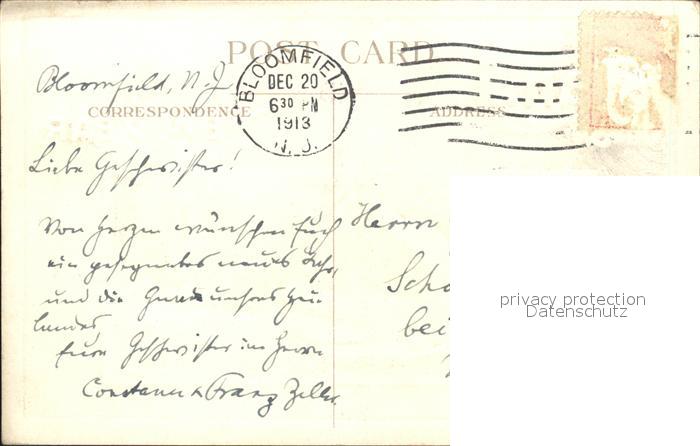 POST CARD
BLOOMFIELD
DEC 20
6 30 PM
1913
N. J.
Bloomfield, N. J.
CORRESPONDENCE
ADDRESS
Liebe Geschwister!
Von Herzen wünschen Euch
ein gesegnetes neues Jahr,
und die Gnade unsres Hei-
landes
Eure Geschwister im Herrn
Constanze & Franz Zeller.
Herrn
Schö
bei
privacy protection
Datenschutz